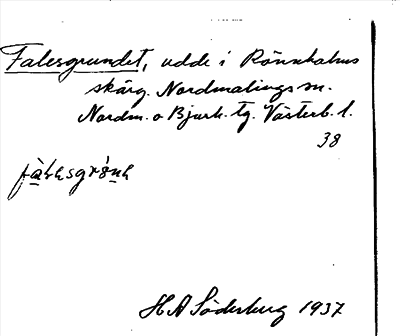 Falesgrundet, udde i Rönnkahus
skärg. Nordmalings sn.
Nordm. o Bjurh. tg. Västerb. l.
38
H A Söderberg 1937